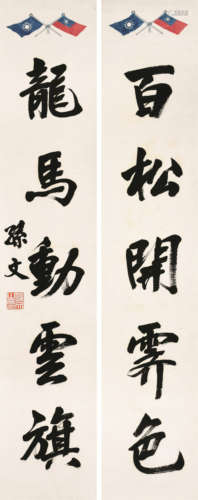 百松開霽色
龍馬動雲旗
孫文